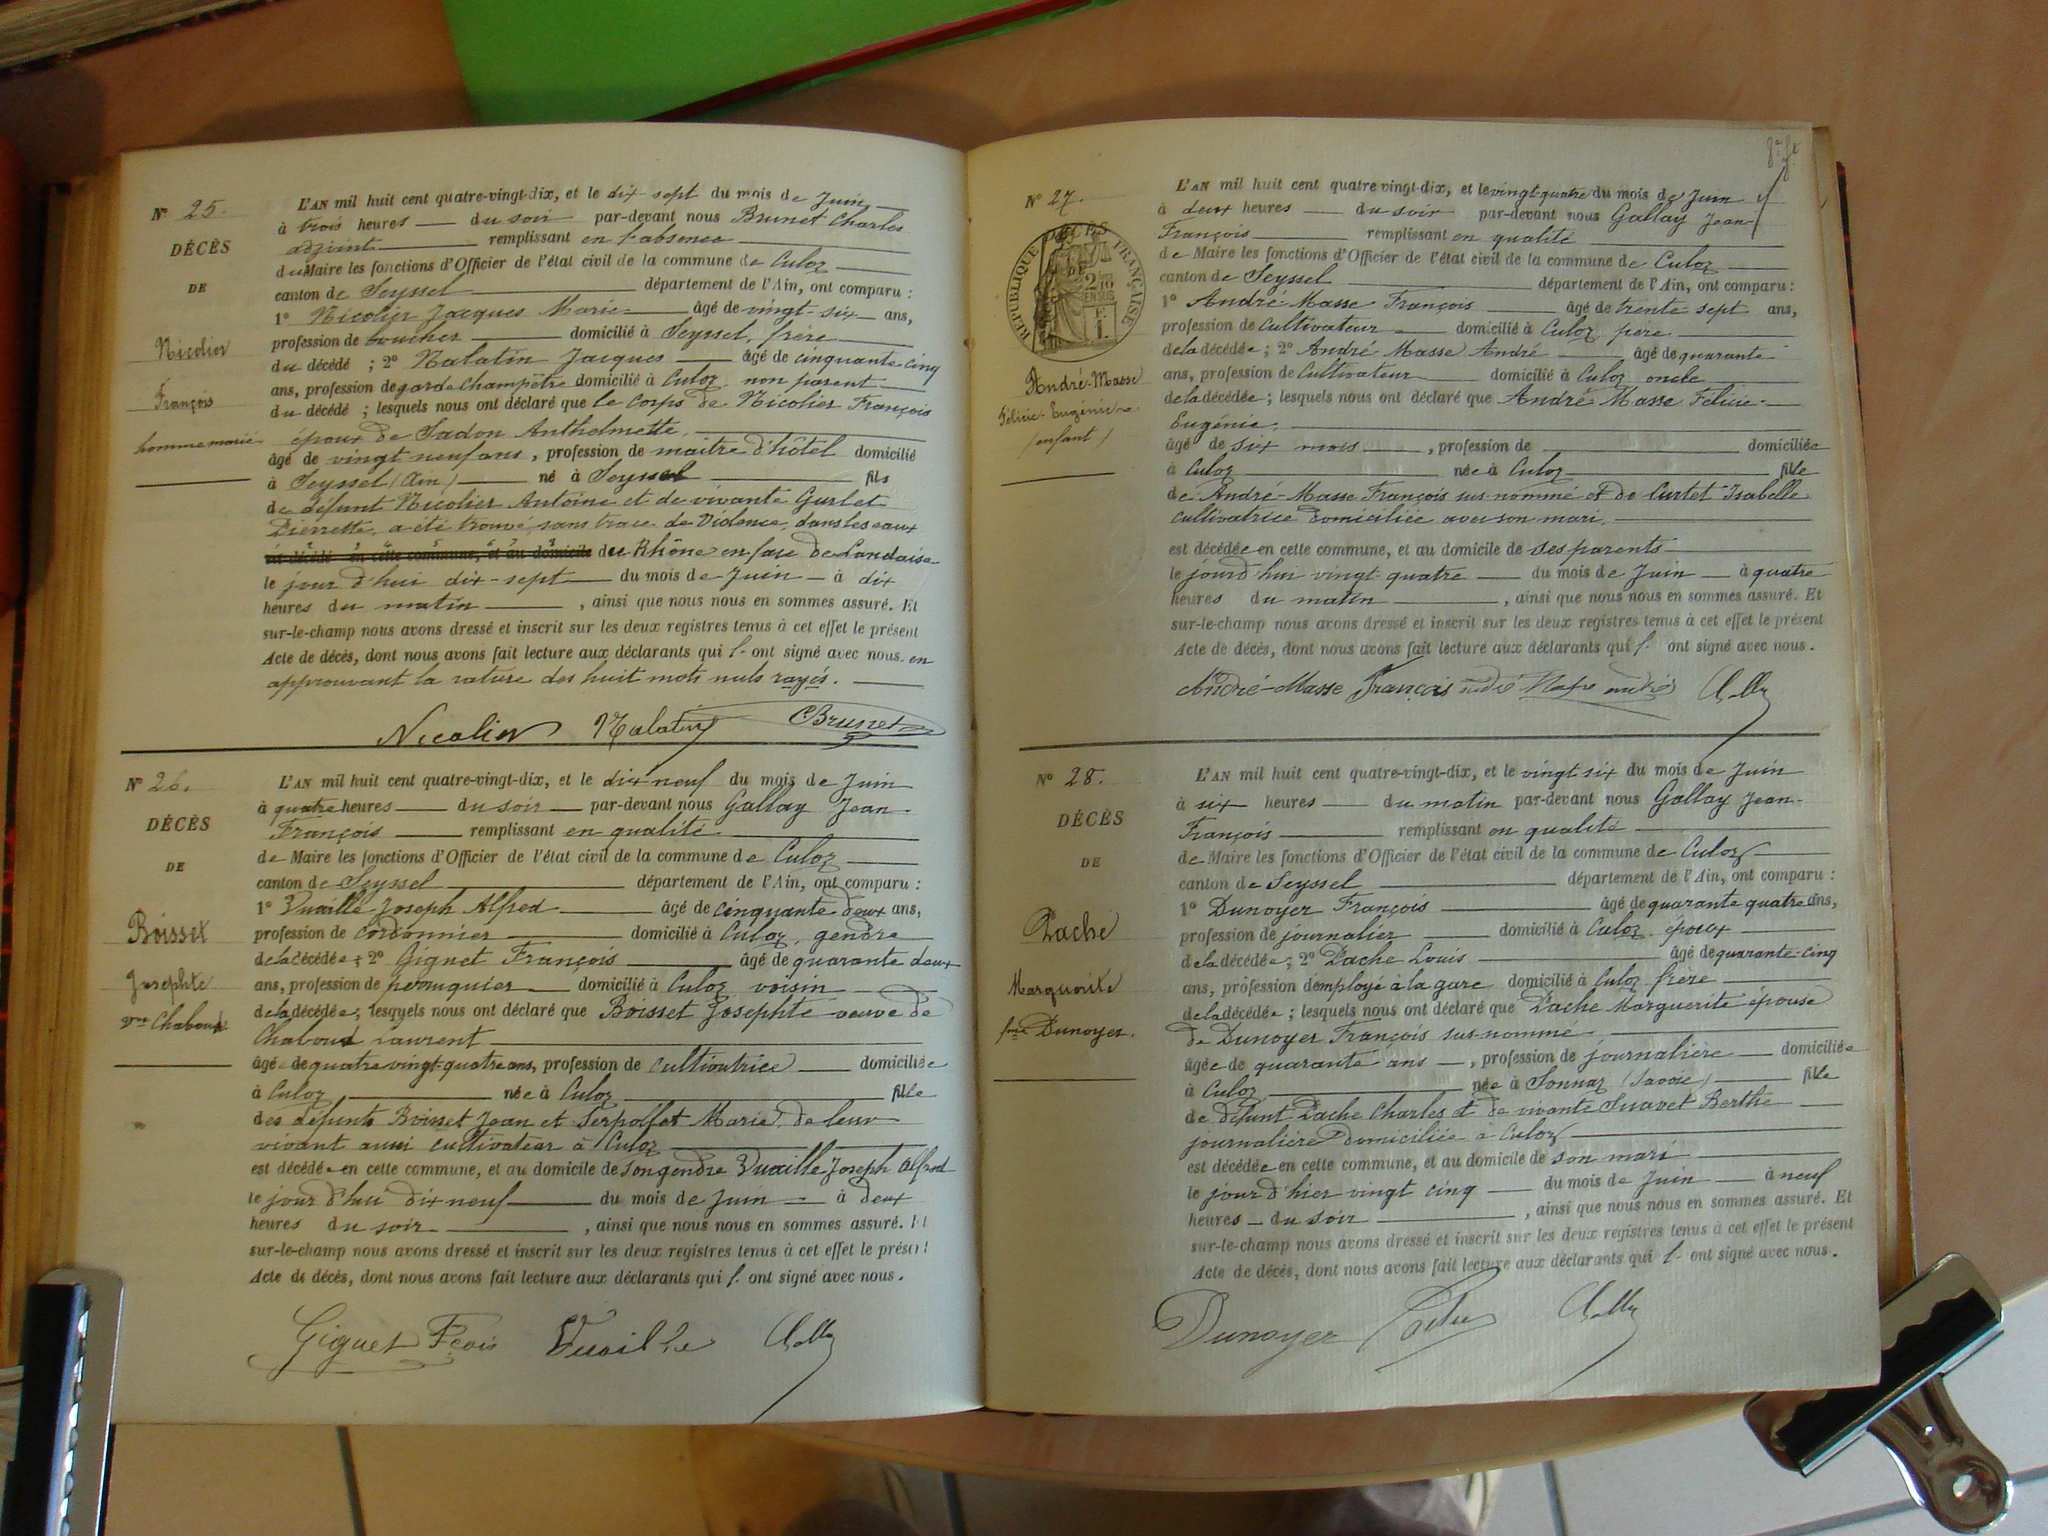 Nº 25.
DÉCÈS
DE
Nicolier
François
homme marié
L'AN mil huit cent quatre-vingt-dix, et le dix-sept du mois de Juin
à trois heures du soir par-devant nous Brunet Charles
adjoint remplissant en l'absence
du Maire les fonctions d'Officier de l'état civil de la commune de Culoz
canton de Seyssel département de l'Ain, ont comparu :
1º Nicolier Jacques Marie âgé de vingt-six ans,
profession de boucher domicilié à Seyssel, frère
du décédé ; 2º Malatin Jacques âgé de cinquante-cinq
ans, profession de garde champêtre domicilié à Culoz non parent
du décédé ; lesquels nous ont déclaré que le corps de Nicolier François
époux de Sadon Anthelmette
âgé de vingt neuf ans, profession de maître d'hôtel domicilié
à Seyssel (Ain) né à Seyssel fils
de défunt Nicolier Antoine et de vivante Gurlet
Pierrette, a été trouvé sans trace de violence, dans les eaux
est décédé en cette commune, et au domicile du Rhône en face de Landaise
le jour d'hui dix-sept du mois de Juin à dix
heures du matin , ainsi que nous nous en sommes assuré. Et
sur-le-champ nous avons dressé et inscrit sur les deux registres tenus à cet effet le présent
Acte de décès, dont nous avons fait lecture aux déclarants qui l' ont signé avec nous. en
approuvant la rature des huit mots nuls rayés.
Nicolier Malatin CBrunet
Nº 26.
DÉCÈS
DE
Boisset
Josephte
vve Chaboud
L'AN mil huit cent quatre-vingt-dix, et le dix neuf du mois de Juin
à quatre heures du soir par-devant nous Gallay Jean-
François remplissant en qualité
de Maire les fonctions d'Officier de l'état civil de la commune de Culoz
canton de Seyssel département de l'Ain, ont comparu :
1º Vuaille Joseph Alfred âgé de cinquante deux ans,
profession de cordonnier domicilié à Culoz, gendre
de la décédée ; 2º Giguet François âgé de quarante deux
ans, profession de perruquier domicilié à Culoz voisin
de la décédée ; lesquels nous ont déclaré que Boisset Josephte veuve de
Chaboud Laurent
âgée de quatre vingt-quatre ans, profession de cultivatrice domiciliée
à Culoz née à Culoz fille
des défunts Boisset Jean et Serpollet Marie, de leur
vivant aussi cultivateur à Culoz
est décédée en cette commune, et au domicile de son gendre Vuaille Joseph Alfred
le jour d'hui dix neuf du mois de Juin à deux
heures du soir , ainsi que nous nous en sommes assuré. Et
sur-le-champ nous avons dressé et inscrit sur les deux registres tenus à cet effet le présent
Acte de décès, dont nous avons fait lecture aux déclarants qui l' ont signé avec nous.
Giguet Fçois Vuaille
Nº 27.
DÉCÈS
DE
RÉPUBLIQUE FRANÇAISE
2/10 EN SUS
André-Masse
Félicie-Eugénie
(enfant)
L'AN mil huit cent quatre-vingt-dix, et le vingt-quatre du mois de Juin
à deux heures du soir par-devant nous Gallay Jean-
François remplissant en qualité
de Maire les fonctions d'Officier de l'état civil de la commune de Culoz
canton de Seyssel département de l'Ain, ont comparu :
1º André-Masse François âgé de trente sept ans,
profession de Cultivateur domicilié à Culoz père
de la décédée ; 2º André Masse André âgé de quarante
ans, profession de Cultivateur domicilié à Culoz oncle
de la décédée ; lesquels nous ont déclaré que André Masse Félicie-
Eugénie,
âgé de six mois , profession de domiciliée
à Culoz née à Culoz fille
de André-Masse François sus-nommé et de Curtet Isabelle
cultivatrice domiciliée avec son mari.
est décédée en cette commune, et au domicile de ses parents
le jourd'hui vingt-quatre du mois de Juin à quatre
heures du matin , ainsi que nous nous en sommes assuré. Et
sur-le-champ nous avons dressé et inscrit sur les deux registres tenus à cet effet le présent
Acte de décès, dont nous avons fait lecture aux déclarants qui l' ont signé avec nous.
André-Masse François André Masse andré
Nº 28.
DÉCÈS
DE
Dache
Marguerite
fme Dunoyer.
L'AN mil huit cent quatre-vingt-dix, et le vingt six du mois de Juin
à six heures du matin par-devant nous Gallay Jean-
François remplissant en qualité
de Maire les fonctions d'Officier de l'état civil de la commune de Culoz
canton de Seyssel département de l'Ain, ont comparu :
1º Dunoyer François âgé de quarante quatre ans,
profession de journalier domicilié à Culoz époux
de la décédée ; 2º Dache Louis âgé de quarante-cinq
ans, profession d'employé à la gare domicilié à Culoz frère
de la décédée ; lesquels nous ont déclaré que Dache Marguerite épouse
de Dunoyer François sus-nommé
âgée de quarante ans , profession de journalière domiciliée
à Culoz née à Sonnaz (Savoie) fille
de défunt Dache Charles et de vivante Suavet Berthe
journalière domiciliée à Culoz
est décédée en cette commune, et au domicile de son mari
le jour d'hier vingt cinq du mois de Juin à neuf
heures du soir , ainsi que nous nous en sommes assuré. Et
sur-le-champ nous avons dressé et inscrit sur les deux registres tenus à cet effet le présent
Acte de décès, dont nous avons fait lecture aux déclarants qui l' ont signé avec nous.
Dunoyer